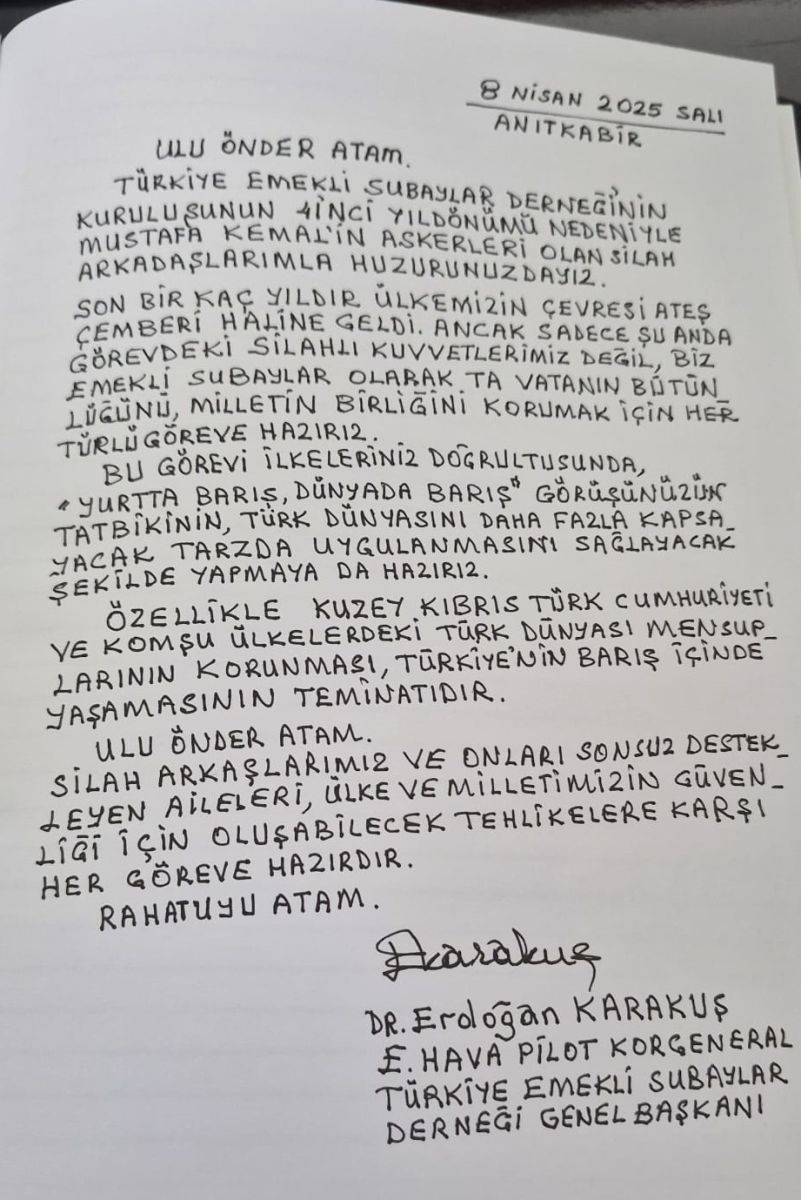 8 NİSAN 2025 SALI
ANITKABİR
ULU ÖNDER ATAM.
TÜRKİYE EMEKLİ SUBAYLAR DERNEĞİ'NİN
KURULUŞUNUN 41İNCİ YILDÖNÜMÜ NEDENİYLE
MUSTAFA KEMAL'İN ASKERLERİ OLAN SİLAH
ARKADAŞLARIMLA HUZURUNUZDAYIZ.
SON BİR KAÇ YILDIR ÜLKEMİZİN ÇEVRESİ ATEŞ
ÇEMBERİ HALİNE GELDİ. ANCAK SADECE ŞU ANDA
GÖREVDEKİ SİLAHLI KUVVETLERİMİZ DEĞİL, BİZ
EMEKLİ SUBAYLAR OLARAK TA VATANIN BÜTÜN_
LÜĞÜNÜ, MİLLETİN BİRLİĞİNİ KORUMAK İÇİN HER
TÜRLÜ GÖREVE HAZIRIZ.
BU GÖREVİ İLKELERİNİZ DOĞRULTUSUNDA,
"YURTTA BARIŞ, DÜNYADA BARIŞ" GÖRÜŞÜNÜZÜN
TATBİKİNİN, TÜRK DÜNYASINI DAHA FAZLA KAPSA_
YACAK TARZDA UYGULANMASINI SAĞLAYACAK
ŞEKİLDE YAPMAYA DA HAZIRIZ.
ÖZELLİKLE KUZEY KIBRIS TÜRK CUMHURİYETİ
VE KOMŞU ÜLKELERDEKİ TÜRK DÜNYASI MENSUP_
LARININ KORUNMASI, TÜRKİYE'NİN BARIŞ İÇİNDE
YAŞAMASININ TEMİNATIDIR.
ULU ÖNDER ATAM.
SİLAH ARKAŞLARIMIZ VE ONLARI SONSUZ DESTEK_
LEYEN AİLELERİ, ÜLKE VE MİLLETİMİZİN GÜVEN_
LİĞİ İÇİN OLUŞABİLECEK TEHLİKELERE KARŞI
HER GÖREVE HAZIRDIR.
RAHAT UYU ATAM.
Ekarakuş
DR. Erdoğan KARAKUŞ
E. HAVA PİLOT KORGENERAL
TÜRKİYE EMEKLİ SUBAYLAR
DERNEĞİ GENEL BAŞKANI